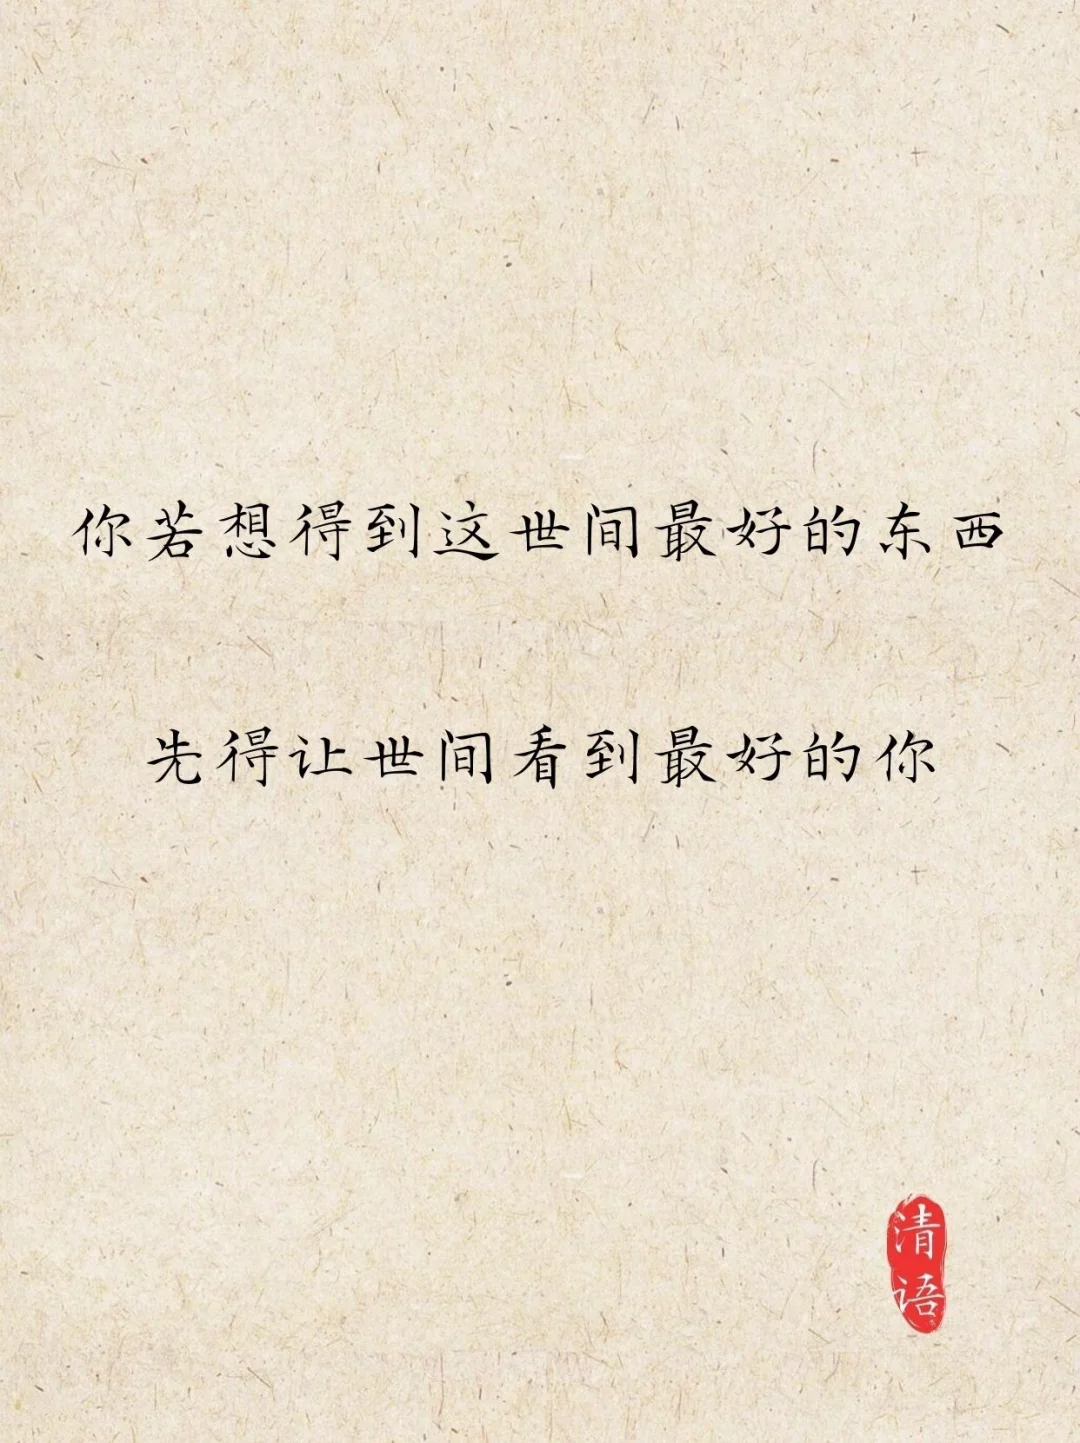 你若想得到这世间最好的东西
先得让世间看到最好的你
清语